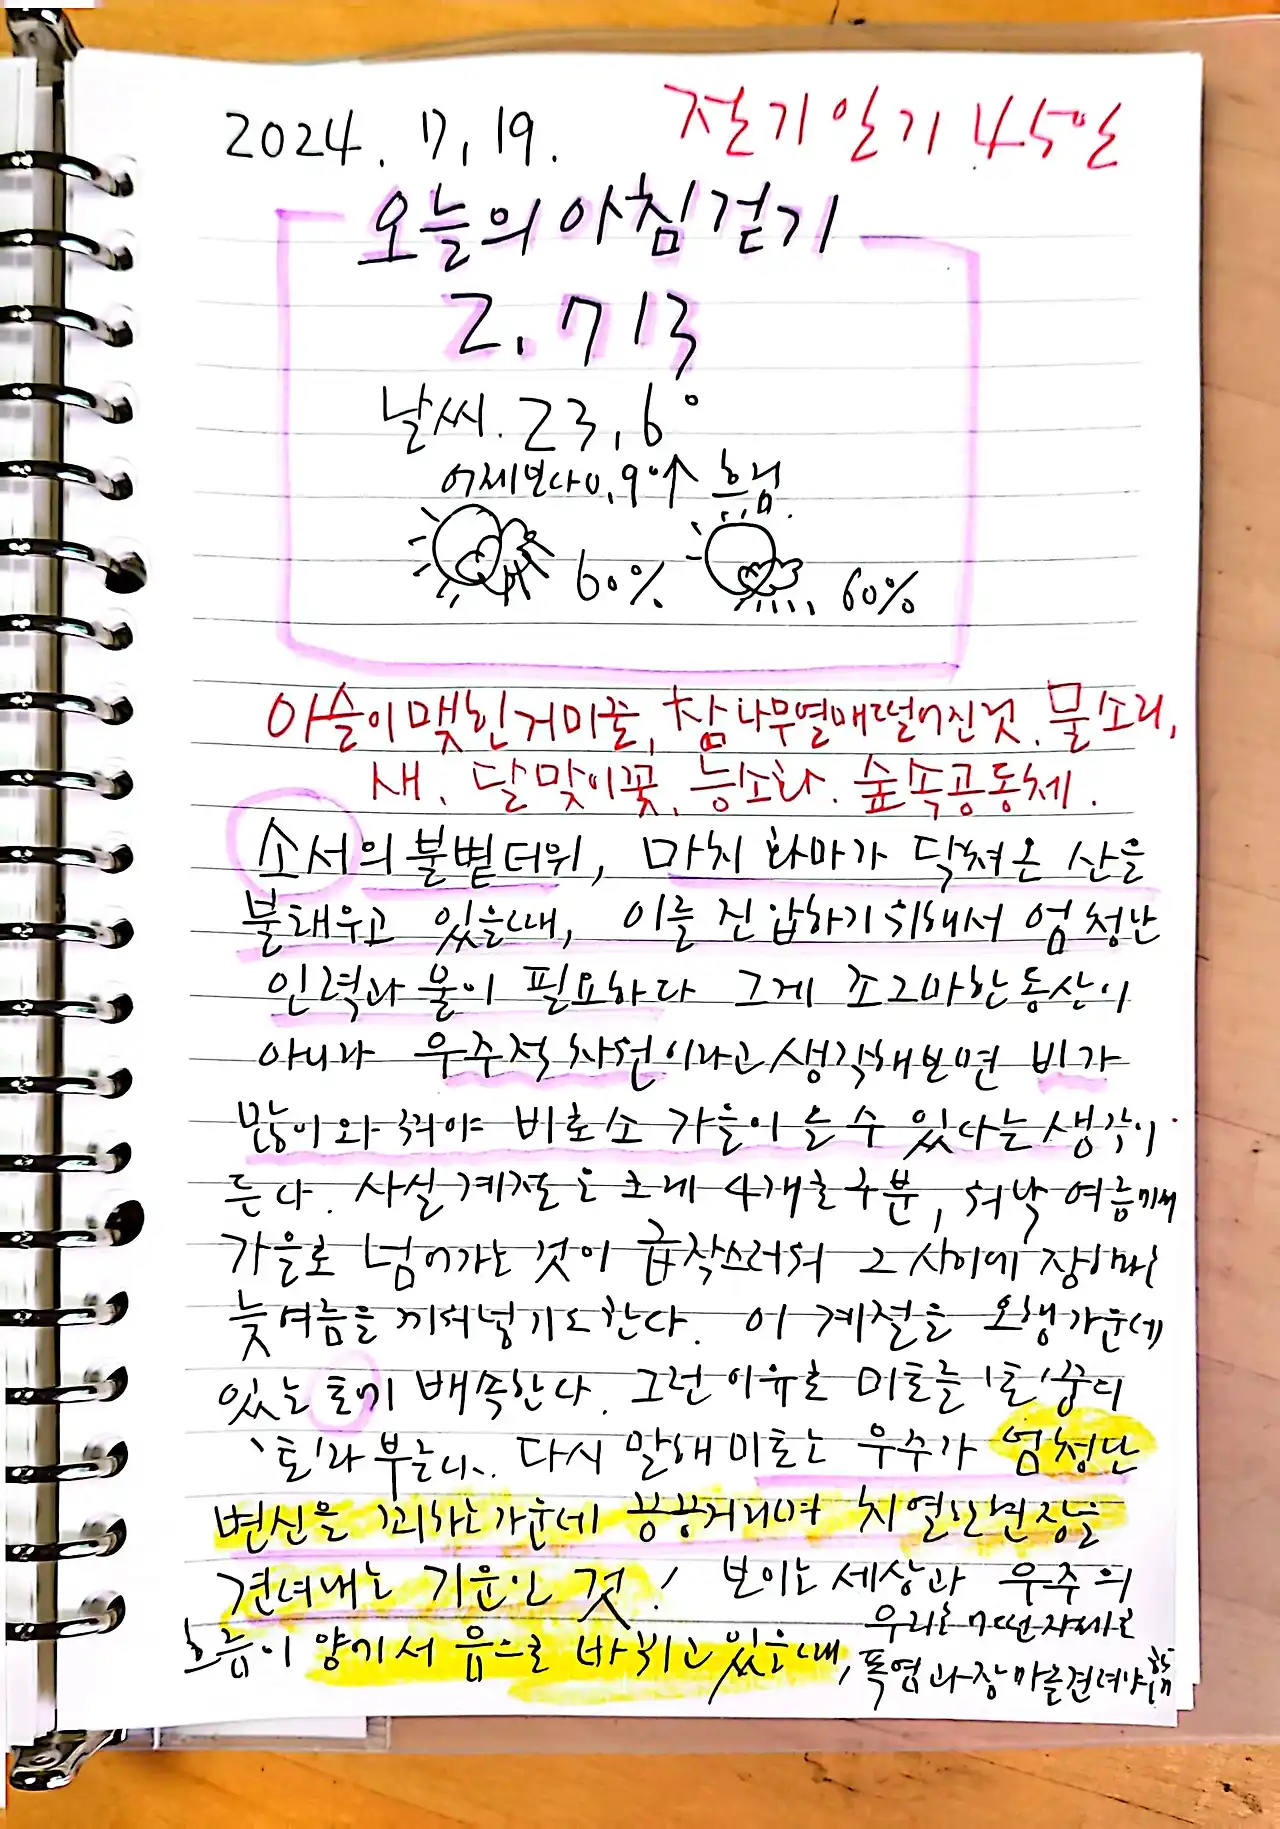 2024. 7. 19.
절기일기 45일
오늘의 아침걷기
2.713
날씨. 23.6°
어제보다 0.9°↑ 흐림.
60% 60%
이슬이 맺힌 거미줄, 참나무열매 떨어진것. 물소리,
새. 달맞이꽃, 능소화. 숲속공동체.
소서의 불볕더위, 마치 화마가 닥쳐온 산을
불태우고 있을때, 이를 진압하기 위해서 엄청난
인력과 물이 필요하다 그게 조그마한 동산이
아니라 우주적 차원이라고 생각해보면 비가
많이 와 줘야 비로소 가을이 들 수 있다는 생각이
든다. 사실 계절도 크게 4개로 구분, 워낙 여름에서
가을로 넘어가는 것이 급작스러워 그 사이에 장하라는
늦여름을 끼워넣기도 한다. 이 계절을 오행 가운데
있는 토기 배속한다. 그런 이유로 미토를 '토' 중의
'토'라 부른다. 다시 말해 미토는 우주가 엄청난
변신을 꾀하는 가운데 끙끙거리며 치열한 현장을
견뎌내는 기운인 것! 보이는 세상과 우주의
흐름이 양기서 음으로 바뀌고 있을때, 우리는 어떤 자세로
폭염과 장마를 견뎌야 함